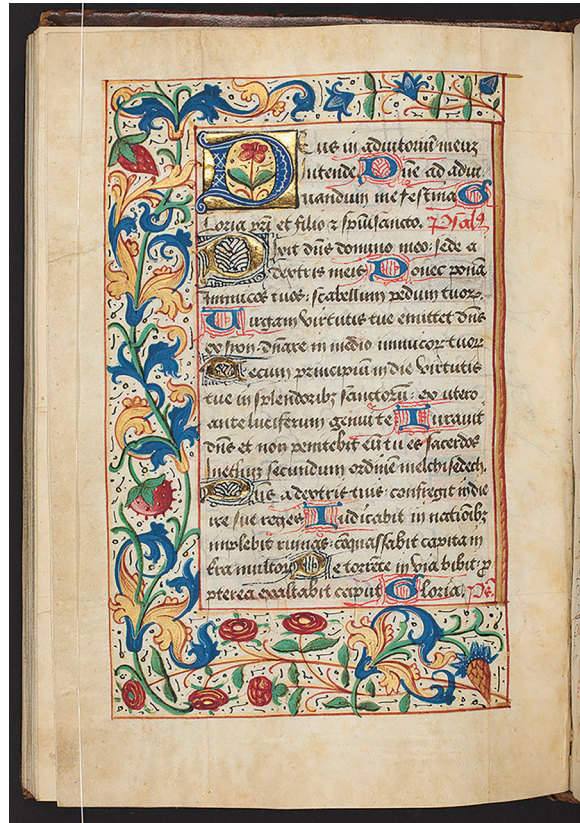 Deus in adiutoriũ meuȝ
intende Dñe ad adiu
uandum me festina G
loria pr̃i et filio ⁊ sp̃ui sancto. Psal9
Dixit dñs domino meo: sede a
dextris meis Donec ponã
inimicos tuos: scabellum pedum tuoꝝ
Uirgam virtutis tue emittet dñs
ex syon: dñare in medio inimicoꝝ tuoꝝ
Tecum principiũ in die virtutis
tue in splendoribꝫ sanctorũ: ex utero
ante luciferum genui te Iurauit
dñs et non penitebit eũ tu es sacerdos
inethnȝ secundum ordinẽ melchisedech.
Dñs a dextris tuis: confregit in die
ire sue reges Iudicabit in nationibꝫ
implebit ruinas: cõquassabit capita in
tr̃a multoꝝ De torrẽte in via bibit: ꝓ
pterea exaltabit caput Gloria. Ps̃.